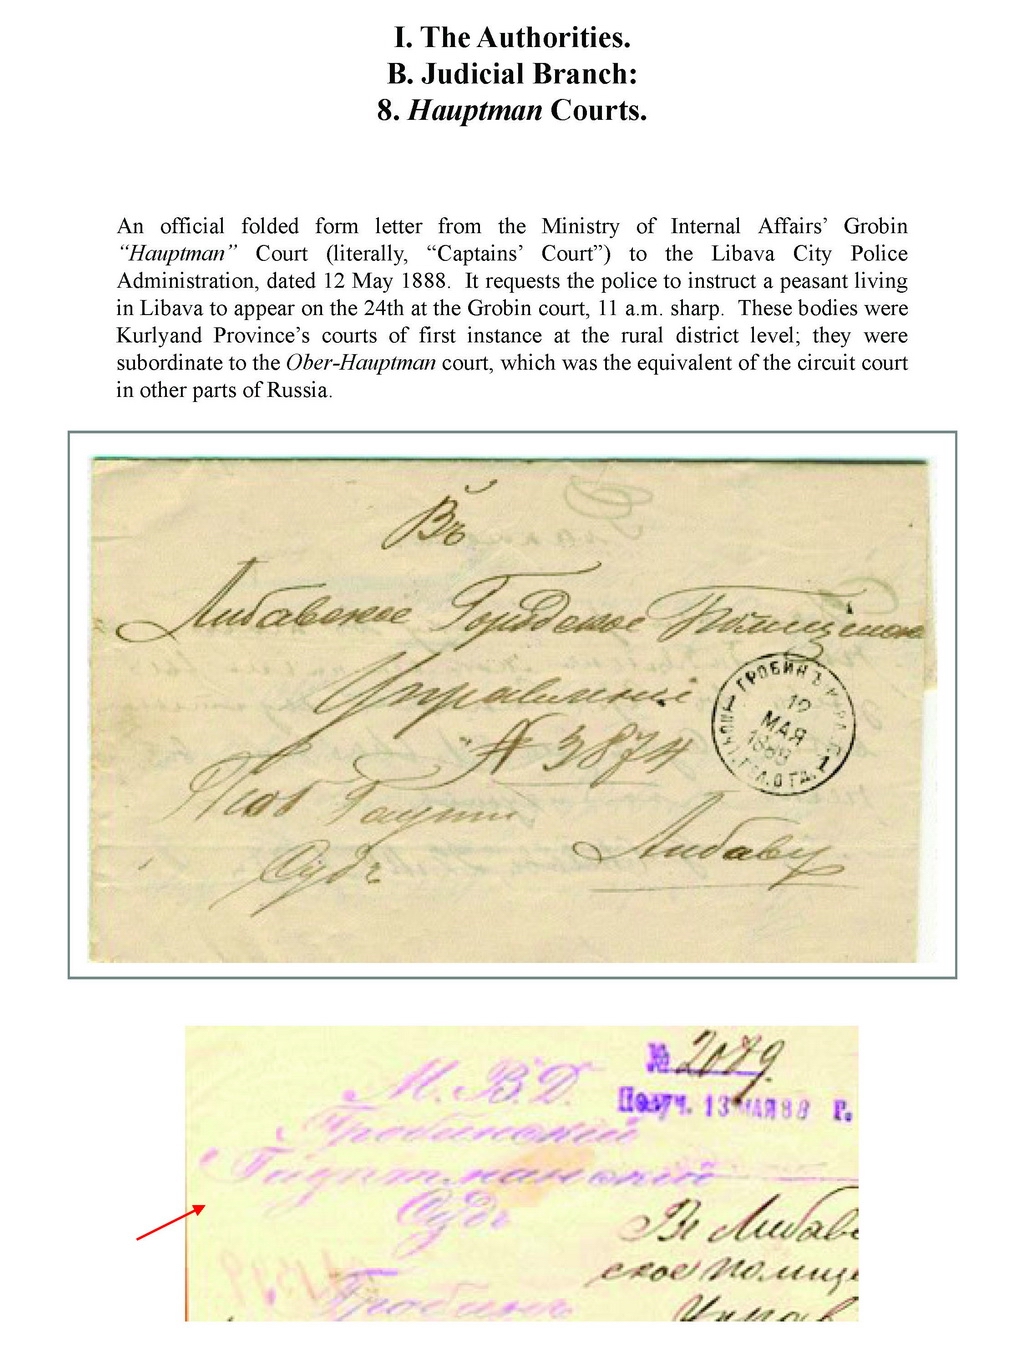 I. The Authorities.
B. Judicial Branch:
8. Hauptman Courts.
An official folded form letter from the Ministry of Internal Affairs’ Grobin
“Hauptman” Court (literally, “Captains’ Court”) to the Libava City Police
Administration, dated 12 May 1888. It requests the police to instruct a peasant living
in Libava to appear on the 24th at the Grobin court, 11 a.m. sharp. These bodies were
Kurlyand Province’s courts of first instance at the rural district level; they were
subordinate to the Ober-Hauptman court, which was the equivalent of the circuit court
in other parts of Russia.
Въ
Либавское Городское Полицейское
Управленіе
№ 3874
Судъ
Либаву
ГРОБИНЪ
12
МАЯ
1888
1
№ 2089.
Получ. 13 МАЯ 88 г.
М. В. Д.
Гробинскій
Гауптманскій
Судъ
Въ Либав-
ское полице
Управ
Гробинъ